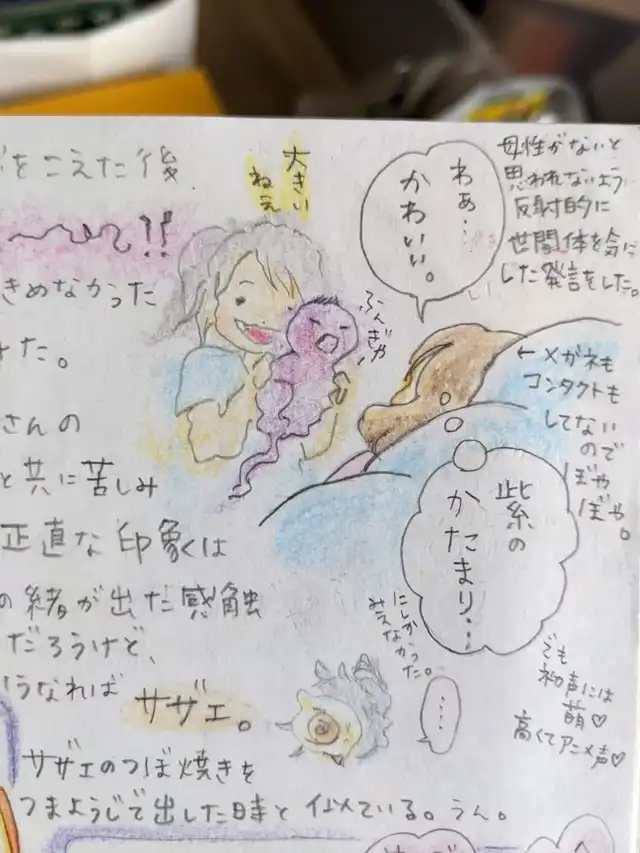 をこえた後
〜!!
きめなかった
た。
さんの
と共に苦しみ
正直な印象は
の緒が出た感触
だろうけど、
うなれば サザエ。
サザエのつぼ焼きを
つまようじで出した時と似ている。うん。
大きい
ねえ
ふんぎゃ
わぁ…
かわいい。
母性がないと
思われないよう
反射的に
世間体を気に
した発言をした。
←メガネも
コンタクトも
してない
ので
ぼや
ぼや。
紫の
かたまり…
にしか
みえなかった。
‥‥
でも
初声には
萌♡
高くてアニメ声♡